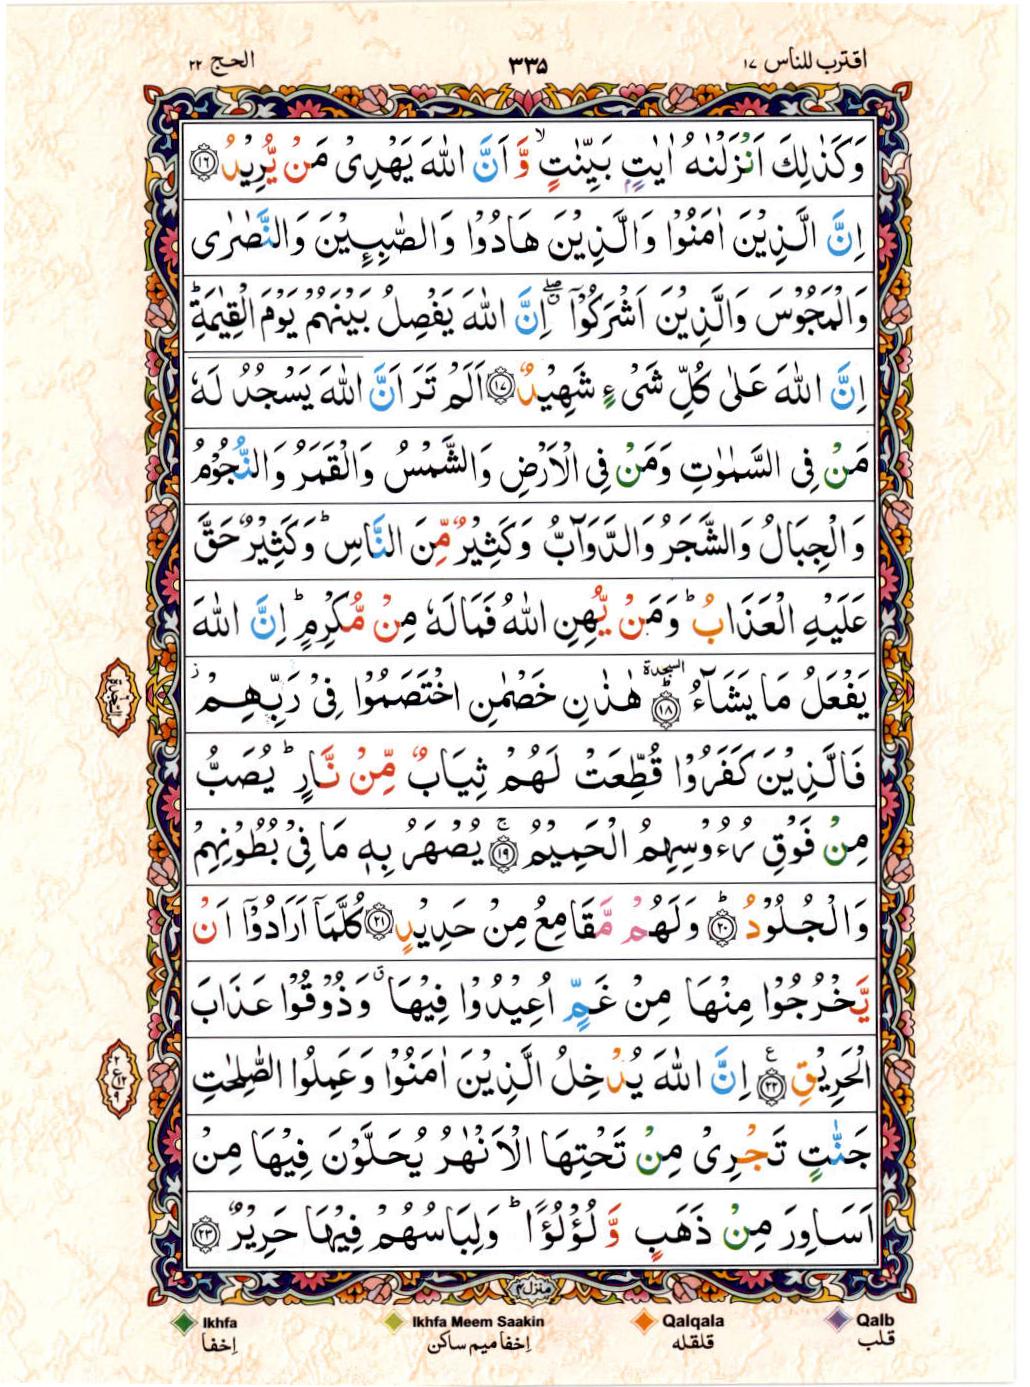 اقترب للناس ١٧
٣٣٥
الحج ٢٢
وَكَذٰلِكَ اَنْزَلْنٰهُ اٰيٰتٍۭ بَيِّنٰتٍ ۙ وَّ اَنَّ اللّٰهَ يَهْدِىْ مَنْ يُّرِيْدُ ﴿۱۶﴾
اِنَّ الَّذِيْنَ اٰمَنُوْا وَالَّذِيْنَ هَادُوْا وَالصّٰبِـِٕيْنَ وَالنَّصٰرٰى
وَالْمَجُوْسَ وَالَّذِيْنَ اَشْرَكُوْۤا ۖ اِنَّ اللّٰهَ يَفْصِلُ بَيْنَهُمْ يَوْمَ الْقِيٰمَةِ ؕ
اِنَّ اللّٰهَ عَلٰى كُلِّ شَىْءٍ شَهِيْدٌ ﴿۱۷﴾ اَلَمْ تَرَ اَنَّ اللّٰهَ يَسْجُدُ لَهٗ
مَنْ فِى السَّمٰوٰتِ وَمَنْ فِى الْاَرْضِ وَالشَّمْسُ وَالْقَمَرُ وَالنُّجُوْمُ
وَالْجِبَالُ وَالشَّجَرُ وَالدَّوَآبُّ وَكَثِيْرٌ مِّنَ النَّاسِ ؕ وَكَثِيْرٌ حَقَّ
عَلَيْهِ الْعَذَابُ ؕ وَمَنْ يُّهِنِ اللّٰهُ فَمَا لَهٗ مِنْ مُّكْرِمٍ ؕ اِنَّ اللّٰهَ
يَفْعَلُ مَا يَشَآءُ ؕ ﴿۱۸﴾ السجدة هٰذٰنِ خَصْمٰنِ اخْتَصَمُوْا فِىْ رَبِّهِمْ ؗ
السَّجْدَة
فَالَّذِيْنَ كَفَرُوْا قُطِّعَتْ لَهُمْ ثِيَابٌ مِّنْ نَّارٍ ؕ يُصَبُّ
مِنْ فَوْقِ رُءُوْسِهِمُ الْحَمِيْمُ ۚ ﴿۱۹﴾ يُصْهَرُ بِهٖ مَا فِىْ بُطُوْنِهِمْ
وَالْجُلُوْدُ ؕ ﴿۲۰﴾ وَلَهُمْ مَّقَامِعُ مِنْ حَدِيْدٍ ﴿۲۱﴾ كُلَّمَاۤ اَرَادُوْۤا اَنْ
يَّخْرُجُوْا مِنْهَا مِنْ غَمٍّ اُعِيْدُوْا فِيْهَا ۗ وَذُوْقُوْا عَذَابَ
الْحَرِيْقِ ﴿۲۲﴾ ع اِنَّ اللّٰهَ يُدْخِلُ الَّذِيْنَ اٰمَنُوْا وَعَمِلُوا الصّٰلِحٰتِ
جَنّٰتٍ تَجْرِىْ مِنْ تَحْتِهَا الْاَنْهٰرُ يُحَلَّوْنَ فِيْهَا مِنْ
اَسَاوِرَ مِنْ ذَهَبٍ وَّ لُؤْلُؤًا ؕ وَلِبَاسُهُمْ فِيْهَا حَرِيْرٌ ﴿۲۳﴾
منزل ۴
Ikhfa
اِخفا
Ikhfa Meem Saakin
اِخفا ميم ساكن
Qalqala
قلقله
Qalb
قلب